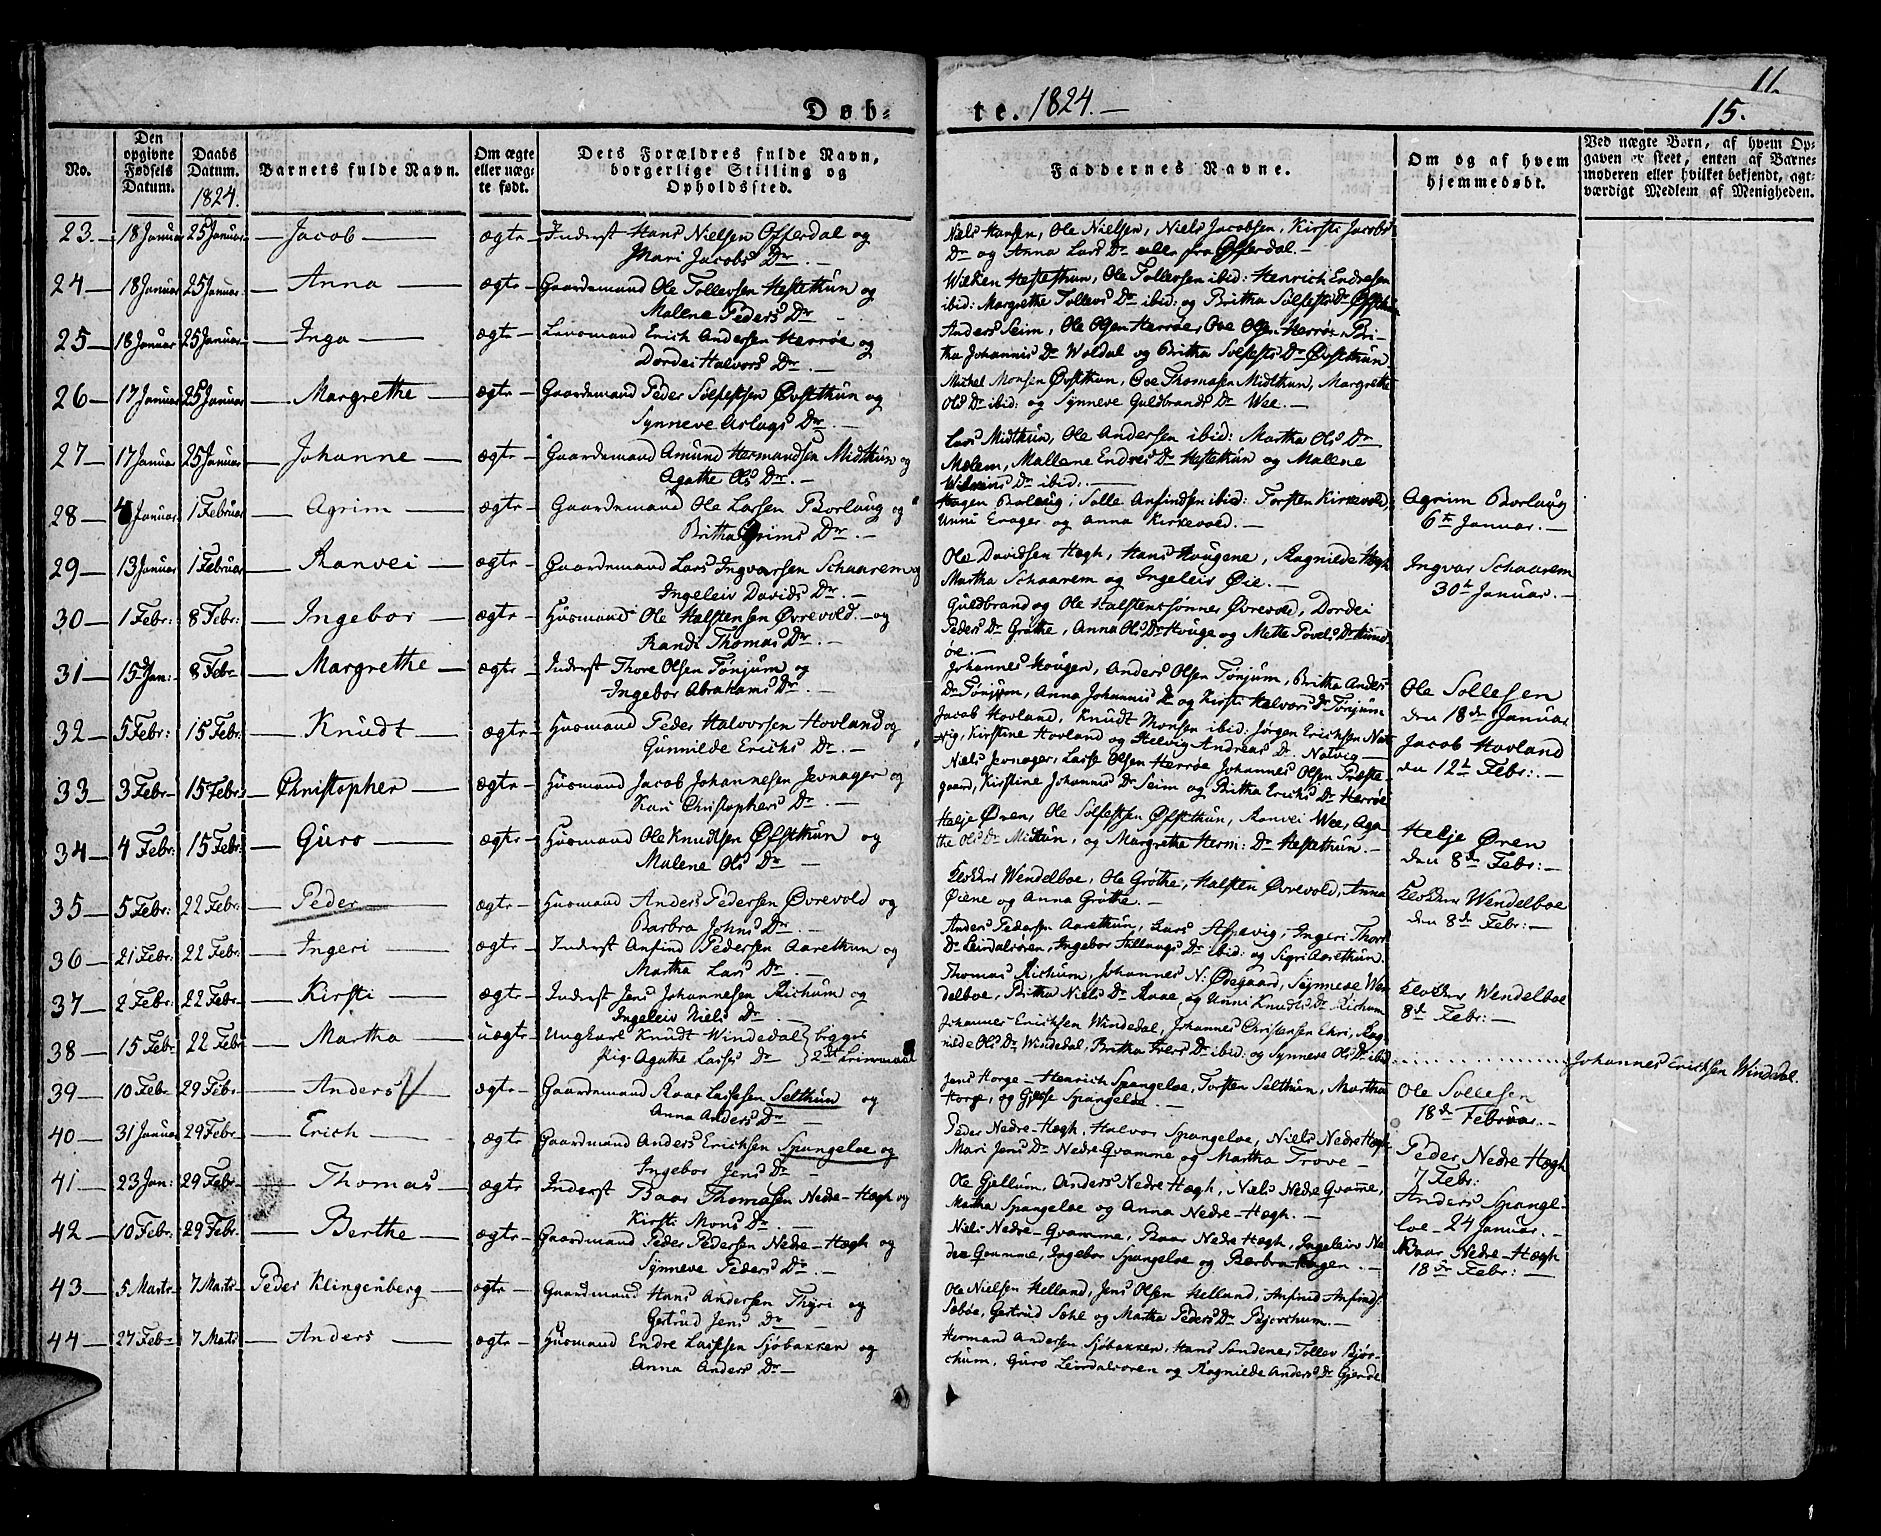 Døb-
te. 1824.—
11.
15.
No.
Den opgivne Fødsels Datum.
Daabs Datum. 1824.
Barnets fulde Navn.
Om ægte eller uægte født.
Dets Forældres fulde Navn, borgerlige Stilling og Opholdssted.
Faddernes Navne.
Om og af hvem hjemmedøbt.
Ved uægte Børn, af hvem Opgaven er skeet, enten af Barnemoderen eller hvilket bekjendt, agtværdigt Medlem af Menigheden.
23.— 18 Januar 25 Januar — Jacob — ægte — Inderst Hans Nielsen Offerdal og
Mari Jacobs Dr.—
Niels Hansen, Ole Nielsen, Niels Jacobsen, Kirsti Jacobs
Dr og Anna Lars Dr alle fra Offerdal.—
24— 18 Januar 25 Januar — Anna — ægte — Gaardemand Ole Tollevsen Hestethun og
Malene Peders Dr —
Ole Tollevsen ibid: Henrich Endresen
ibid: Margrethe Tollevs Dr ibid: og Britha Solfests Dr
25— 18 Januar 25 Januar — Inga — ægte — Erich Andersen Herrøe og
Dordei Halvors Dr.—
Anders Seim, Ole Olsen Herrøe, Ove Olsen Herrøe, Bri-
tha Johannis Dr Woldal og Britha Solfests Dr Øvstethun
26— 17 Januar 25 Januar — Margrethe — ægte — Gaardemand Peder Solfestsen Øvstthun og
Synneve Aslags Dr.—
Michel Monsen Øvstthun, Ove Thomasen Midthun, Margrethe
Ols Dr ibid: og Synneve Guldbrands Dr Wee.—
27— 17 Januar 25 Januar — Johanne — ægte — Gaardemand Amund Hermandsen Midthun og
Agathe Ols Dr.—
Lars Midthun, Ole Andersen ibid: Martha Ols Dr
Molem, Mallene Endres Dr Hestethun og Malene
Dr ibid:—
28— 4 Januar 1 Februar — Agrim — ægte — Gaardemand Ole Larsen Borlaug og
Britha Grims Dr.—
Hagen Borlaug, Salle Anfindsen ibid: Torsten Kirkevold,
Unni Erager og Anna Kirkevold.—
Agrim Borlaug
6te Januar.—
29— 13 Januar 1 Februar — Ranvei — ægte — Gaardemand Lars Ingvarsen Schaarem og
Ingeleiv Davids Dr.—
Ole Davidsen Hægh, Hans Hougene, Ragnilde Hægh
Martha Schaarem og Ingeleiv Øie.—
Ingvar Schaarem
30te Januar.—
30— 1 Febr: 8 Febr: — Ingebor — ægte — Husmand Ole Halstensen Øvrevold — og
Randi Thomas Dr.—
Guldbrand og Ole Halstenssønner Øvrevold, Dordei
Peders Dr Grøthe, Anna Ols Dr Houge og Mette Povels Dr
øe.—
31— 15de Jan: 8 Febr — Margrethe — ægte — Inderst Thore Olsen Tønjum og
Ingebor Abrahams Dr.—
Johannes Hougen, Anders Olsen Tønjum, Britha Anders
Dr Tønjum, Anna Johannis Dr og Kirsti Halvors Dr Tønjum
Ole Sollesen
den 18de Januar
32— 5 Febr: 15 Febr. — Knudt — ægte — Husmand Peder Halvorsen Hovland og
Gunnilde Erichs Dr.—
Jacob Hovland, Knudt Monsen ibid. Jørgen Erichsen Nat-
vig, Kirstine Hovland og Helvig Andreas Dr. Natvig—
Jacob Hovland
den 12te Febr:—
33— 3 Febr— 15 Febr: — Christopher — ægte — Husmand Jacob Johannesen Jevnager og
Kari Christophers Dr.—
Niels Jevnager, Lasse Olsen Herrøe Johannes Olsen Præste-
gaard, Kirstine Johannis Dr Seim og Britha Erichs Dr Herrøe
34— 4 Febr: 15 Febr: — Guro — ægte — Husmand Ole Knudtsen Øfstthun og
Malene Ols Dr —
Helje Øren, Ole Solfestsen Øfstethun, Ranvei Wee, Aga-
the Ols Dr Midthun, og Margretha Herm: Dr Hestethun.—
Helje Øren
den 8de Febr:—
35— 5 Febr: 22 Febr: — Peder — ægte — Husmand Anders Pedersen Øvrevold og
Barbra Johns Dr.—
Klokker Wendelboe, Ole Grøthe, Halsten Øvrevold, Anna
Øiene og Anna Grøthe.—
Klokker Wendelboe
den 8de Febr:—
36— 21 Febr: 22 Febr: — Ingeri — ægte — Inderst Anfind Pedersen Aarethun og
Martha Lars Dr.—
Anders Pedersen Aarethun, Lars Ingeri Thord
Dr Leirdalsøren, Ingebor Dr ibid: og Sigri Aarethun.
37— 2 Febr: 22 Febr — Kirsti — ægte — Inderst Jens Johannesen Richum og
Ingeleiv Niels Dr.—
Thomas Richum, Johannes N. Ødegaard, Synneve Wen-
delboe, Britha Niels Dr og Unni Knudts Dr Richum
Klokker Wendelboe
8de Febr:—
38— 15 Febr. 22 Febr — Martha — uægte — Ungkarl Knudt Windedal } begges
Pig: Agathe Lasses Dr } 2det Leiermaal
Johannes Erichsen Windedal, Johannes Christensen Ehri, Rag-
nilde Ols Dr Windedal, Britha Dr ibid: og Synneve Ols Dr ibid
Johannes Erichsen Windedal.
39— 10 Febr: 29 Febr. — Anders — ægte — Gaardemand Roar Lassesen Selthun og
Anna Anders Dr —
Jens Horge — Henrich Spangeloe, Torsten Selthun, Martha
Horge, og Spangeloe —
Ole Sollesen
18de Februar.—
40— 31 Januar 29 Febr — Erich — ægte — Gaardmand Anders Erichsen Spangeloe og
Ingebor Jens Dr —
Peder Nedre-Hægh, Halvor Spangeloe, Niels Nedre Hægh
Mari Jens Dr Nedre Qvamme og Martha Trove —
Peder Nedre Hægh
7 Febr:
41— 23 Jan: 29 Febr — Thomas — ægte — Inderst Baar Thomasen Nedre-Hægh og
Kirsti Mons Dr.—
Ole Gjellum, Anders Nedre Hægh, Niels Nedre Qvamme,
Martha Spangeloe og Anna Nedre-Hægh.—
Anders Spange-
loe — 24 Januar.—
42— 10 Febr: 29 Febr. — Berthe — ægte — Gaardmand Peder Pedersen Nedre-Hægh og
Synneve Peders Dr.—
Niels Nedre-Qvamme, Baar Nedre Hægh, Ingeleiv Ne-
dre Qvamme, Ingebor Spangeloe og Barbra Hougen.—
Baar Nedre-Hægh
18de Febr:—
43— 5 Marts— 7 Marts— Peder Klingenberg — ægte — Gaardmand Hans Andersen Thyri og
Gertrud Jens Dr —
Ole Nielsen Helland, Jens Olsen Helland, Anfind Anfinds:
Sæbøe, Gertrud Sohl og Martha Peders Dr Bjorchum.—
44— 27 Feb— 7 Marts — Anders — ægte — Husmand Endre Lassesen Sjøbakken og
Anna Anders Dr —
Hermand Andersen Sjøbakken, Hans Sandenes Tollev Bjør-
chum, Guro Leirdalsøren og Ragnilde Anders Dr Gjerde